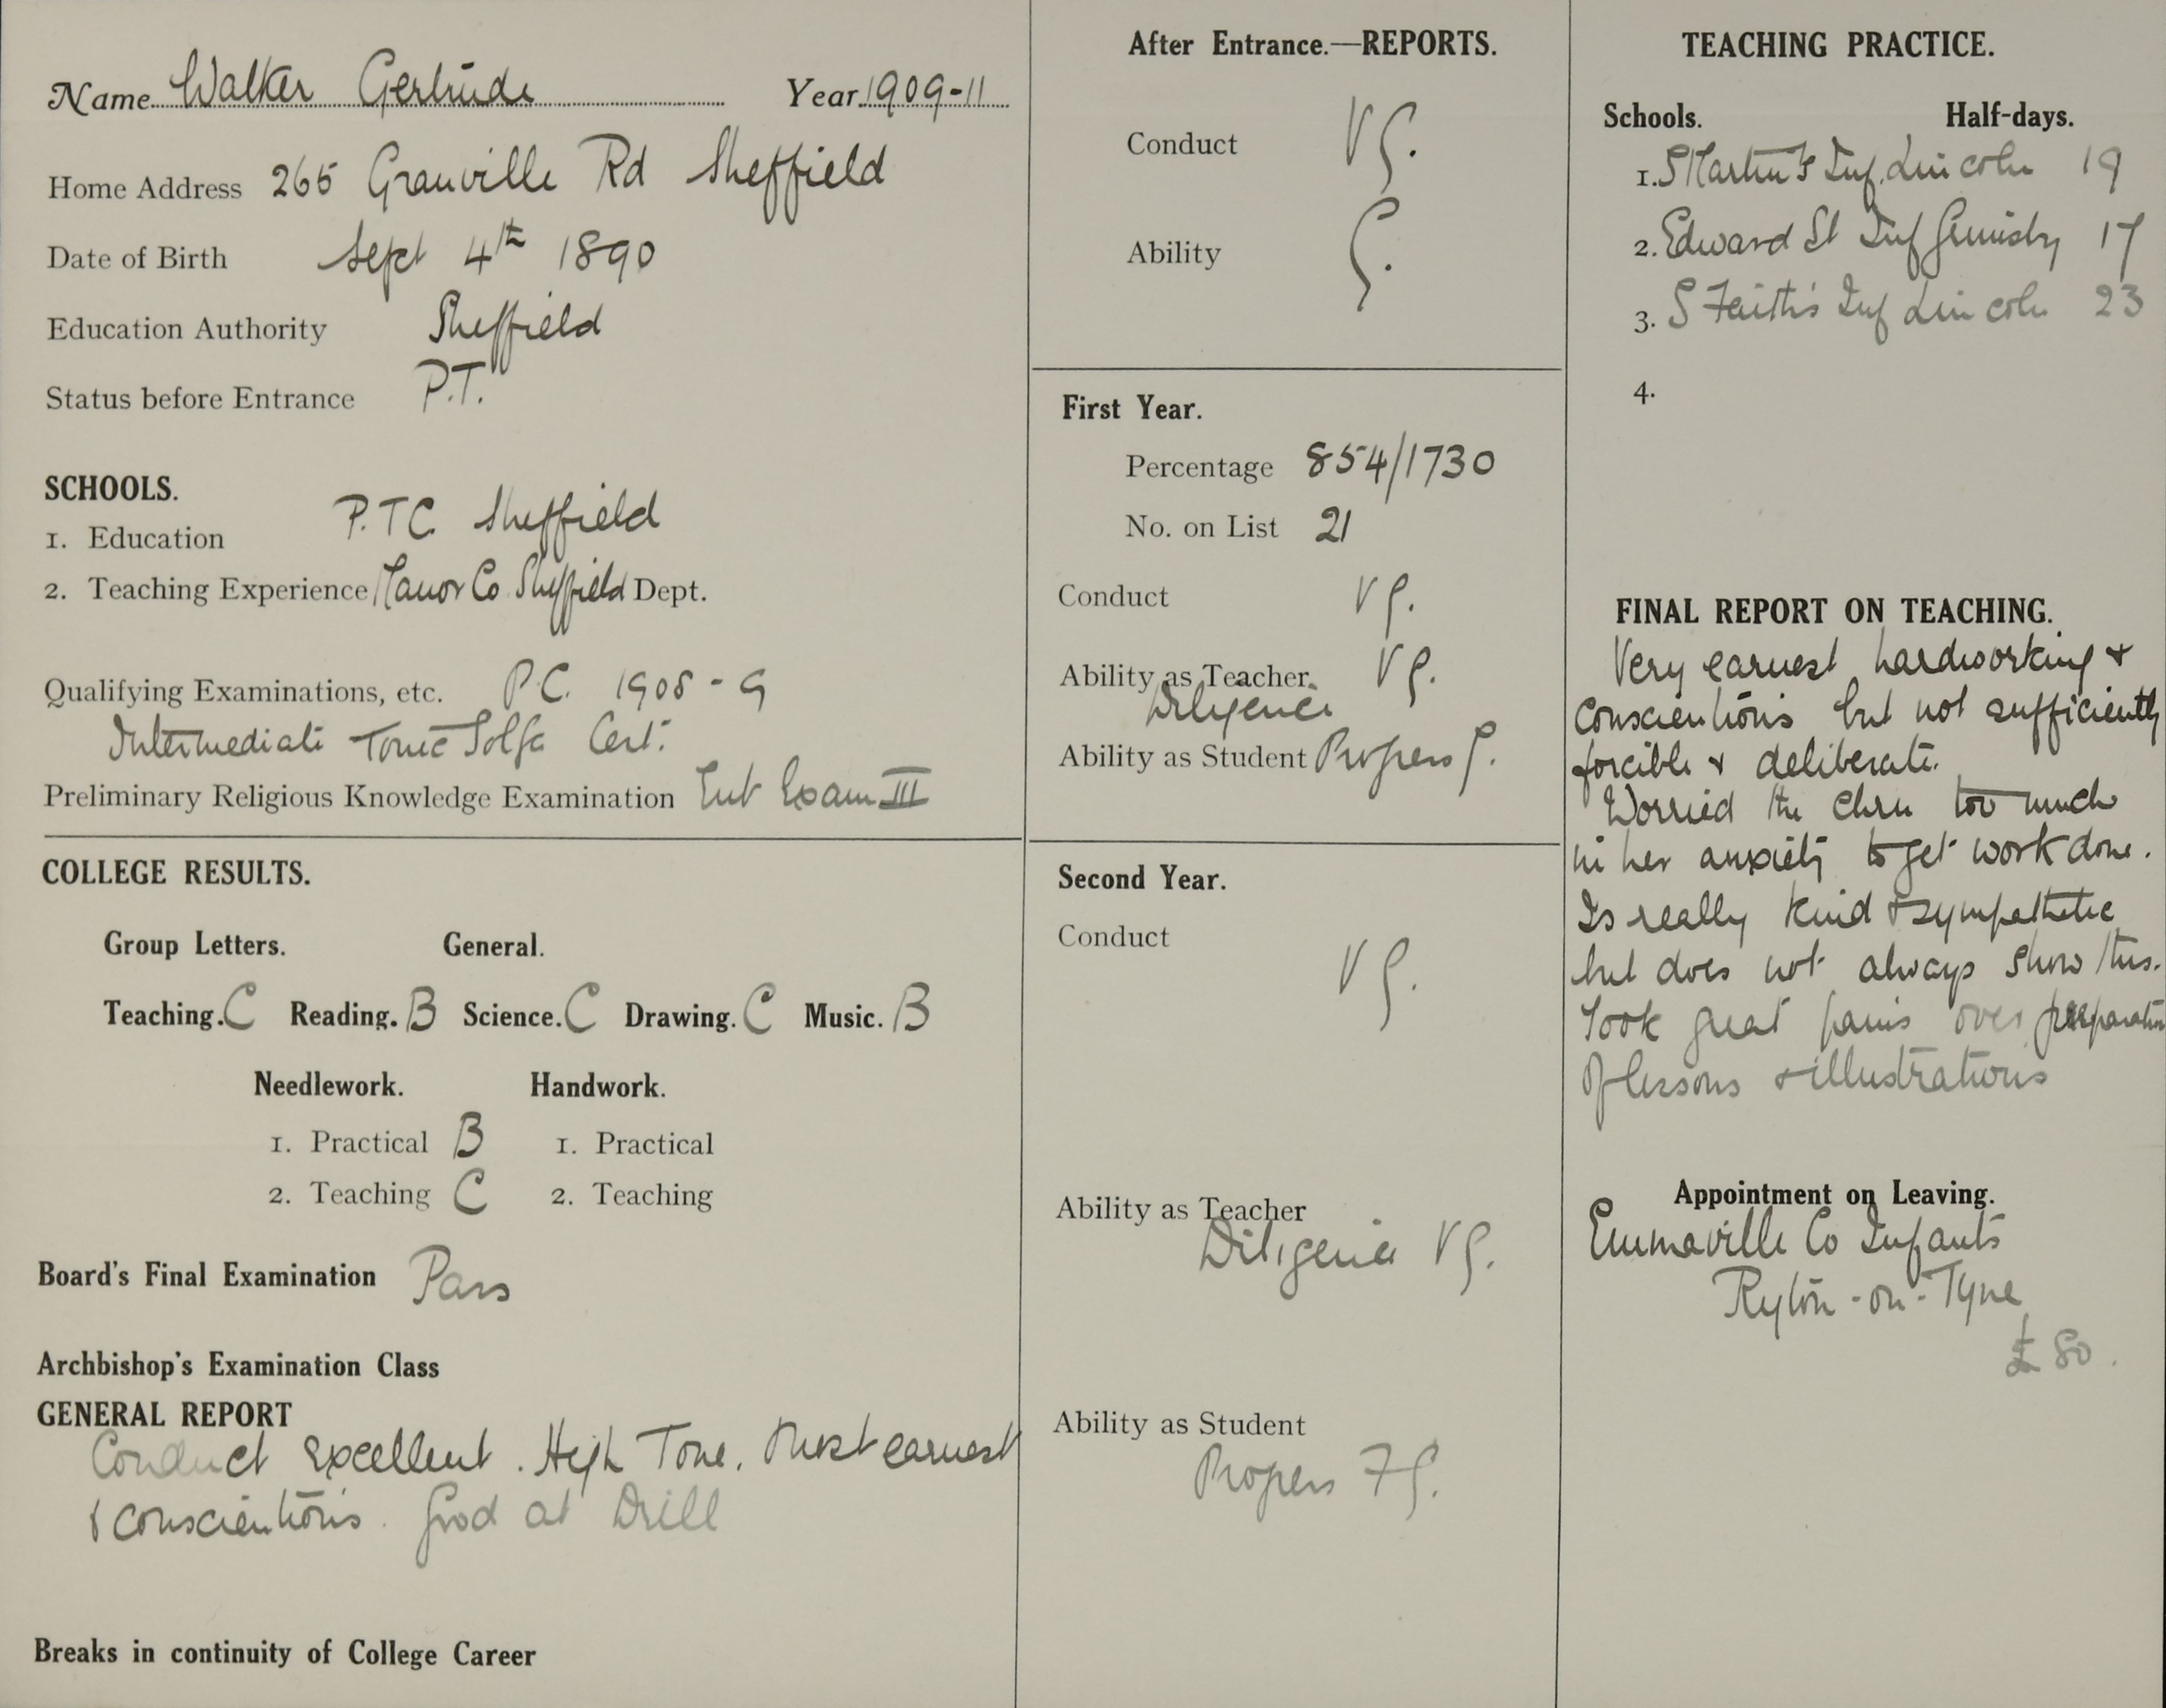 Name Walker Gertrude Year 1909-11
Home Address 265 Granville Rd Sheffield
Date of Birth Sept 4th 1890
Education Authority Sheffield
Status before Entrance P.T.
SCHOOLS.
1. Education P.T.C. Sheffield
2. Teaching Experience Manor Co Sheffield Dept.
Qualifying Examinations, etc. P.C. 1908-9
Intermediate Tonic Solfa Cert.
Preliminary Religious Knowledge Examination Ent Exam III
COLLEGE RESULTS.
Group Letters. General.
Teaching. C Reading. B Science. C Drawing. C Music. B
Needlework. Handwork.
1. Practical B 1. Practical
2. Teaching C 2. Teaching
Board's Final Examination Pass
Archbishop's Examination Class
GENERAL REPORT
Conduct excellent. High Tone. Most earnest
& conscientious. Good at Drill
Breaks in continuity of College Career
After Entrance.—REPORTS.
Conduct VG.
Ability G.
First Year.
Percentage 854/1730
No. on List 21
Conduct VG.
Ability as Teacher VG.
Diligence
Ability as Student Progress G.
Second Year.
Conduct VG.
Ability as Teacher
Diligence VG.
Ability as Student
Progress FG.
TEACHING PRACTICE.
Schools. Half-days.
1. S Martin's Inf. Lincoln 19
2. Edward St Inf Grimsby 17
3. S Faith's Inf Lincoln 23
4.
FINAL REPORT ON TEACHING.
Very earnest hardworking &
conscientious but not sufficiently
forcible & deliberate.
Worried the chn too much
in her anxiety to get work done.
Is really kind & sympathetic
but does not always show this.
Took great pains over preparation
of lessons & illustrations
Appointment on Leaving.
Emmaville Co Infants
Ryton-on-Tyne
£80.